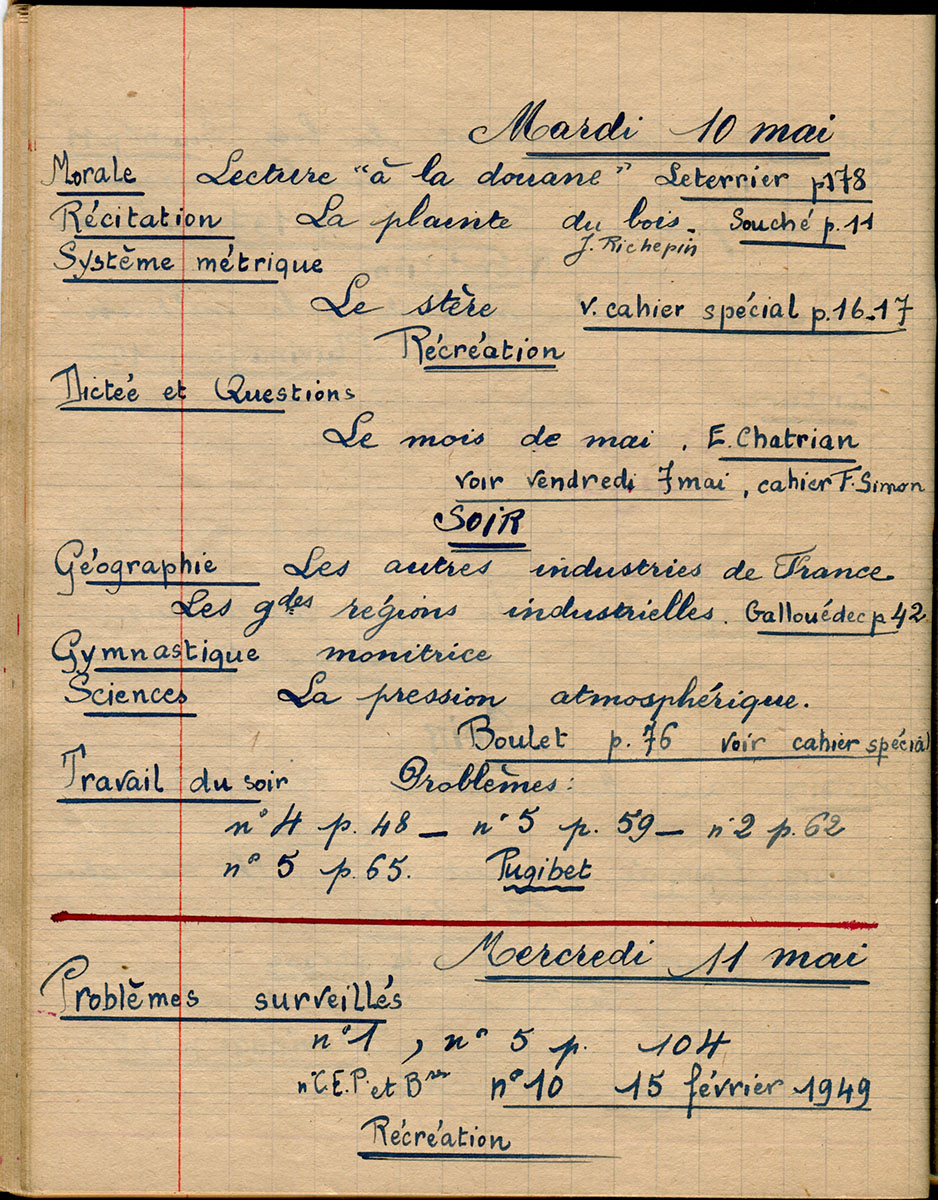 Mardi 10 mai
Morale Lecture "à la douane" Leterrier p178
Récitation La plainte du bois. Souché p.11
J. Richepin
Système métrique
Le stère v. cahier spécial p.16-17
Récréation
Dictée et Questions
Le mois de mai, E. Chatrian
voir vendredi 7 mai, cahier F. Simon
SOIR
Géographie Les autres industries de France
Les gdes régions industrielles. Gallouédec p 42
Gymnastique monitrice
Sciences La pression atmosphérique.
Boulet p. 76 voir cahier spécial
Travail du soir Problèmes:
n° 4 p. 48 _ n° 5 p. 59 _ n° 2 p. 62
n° 5 p. 65. Pugibet
Mercredi 11 mai
Problèmes surveillés
n° 1, n° 5 p. 104
C.E.P. et n° 10 15 février 1949
Récréation